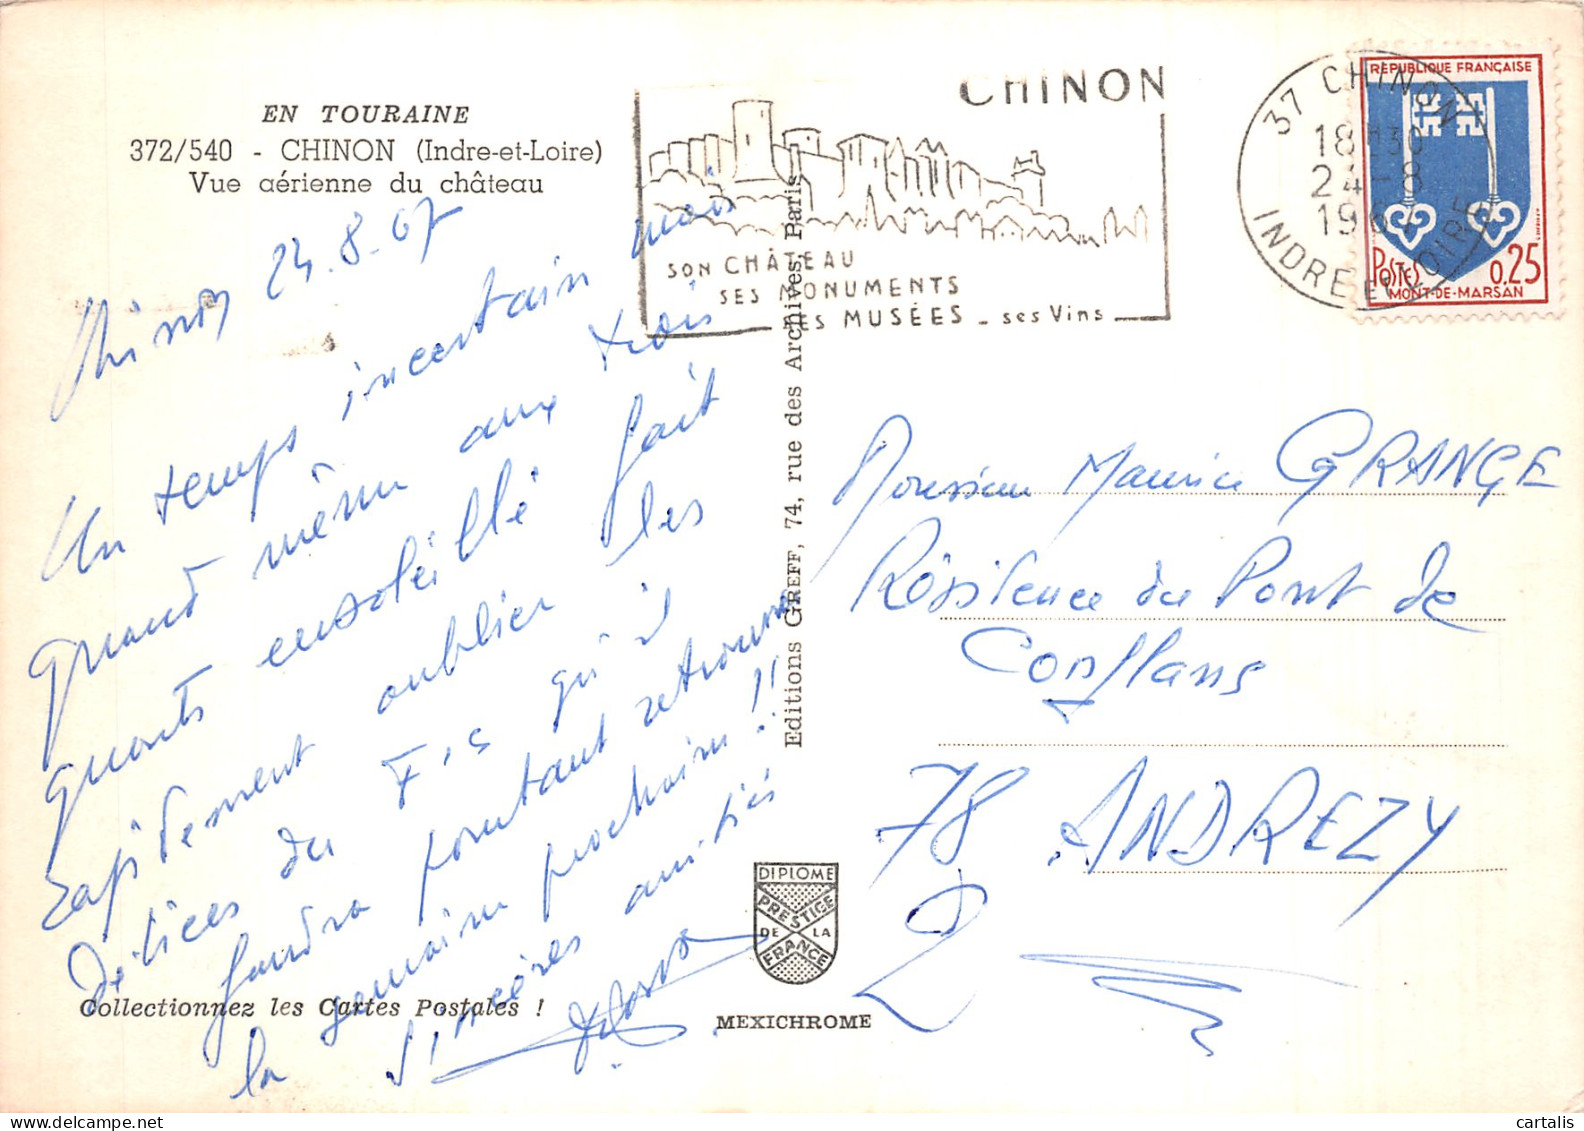 EN TOURAINE
372/540 - CHINON (Indre-et-Loire)
Vue aérienne du château
Chinon 24.8.67
Un temps incertain mais
quand même aux trois
quarts ensoleillé fait
rapidement oublier les
délices du F'S qu'il
faudra pourtant retrouver
la semaine prochaine !!
Sincères amitiés
Collectionnez les Cartes Postales !
Editions GREFF, 74, rue des Archives, Paris
DIPLOME
PRESTIGE
DE LA
FRANCE
MEXICHROME
CHINON
SON CHÂTEAU
SES MONUMENTS
SES MUSÉES - ses Vins
37 CHINON
18H30
24-8
1967
INDRE ET LOIRE
REPUBLIQUE FRANÇAISE
POSTES 0,25
MONT-DE-MARSAN
Monsieur Maurice GRANGE
Résidence du Pont de
Conflans
78 ANDREZY
cartalis